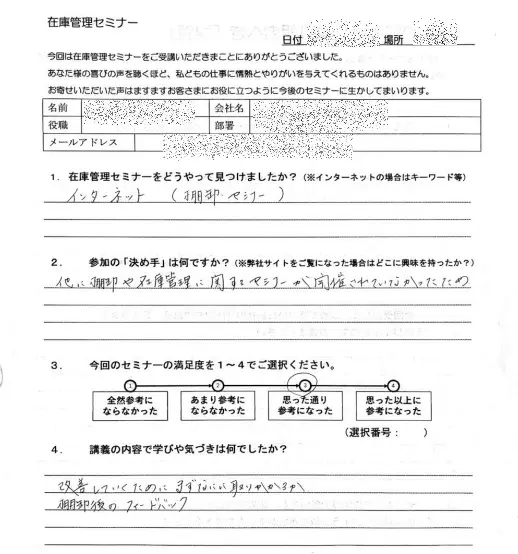 在庫管理セミナー
日付 場所
今回は在庫管理セミナーをご受講いただきまことにありがとうございました。
あなた様の喜びの声を聴くほど、私どもの仕事に情熱とやりがいを与えてくれるものはありません。
お寄せいただいた声はますますお客さまにお役に立つように今後のセミナーに生かしてまいります。
名前 会社名
役職 部署
メールアドレス
1. 在庫管理セミナーをどうやって見つけましたか?(※インターネットの場合はキーワード等)
インターネット (棚卸・セミナー)
2. 参加の「決め手」は何ですか?(※弊社サイトをご覧になった場合はどこに興味を持ったか?)
他に棚卸や在庫管理に関するセミナーが開催されていなかったため
3. 今回のセミナーの満足度を1~4でご選択ください。
① ② ③ ④
全然参考にならなかった あまり参考にならなかった 思った通り参考になった 思った以上に参考になった
(選択番号: )
4. 講義の内容で学びや気づきは何でしたか?
改善していくためにまずなにに取りかかるか
棚卸後のフィードバック